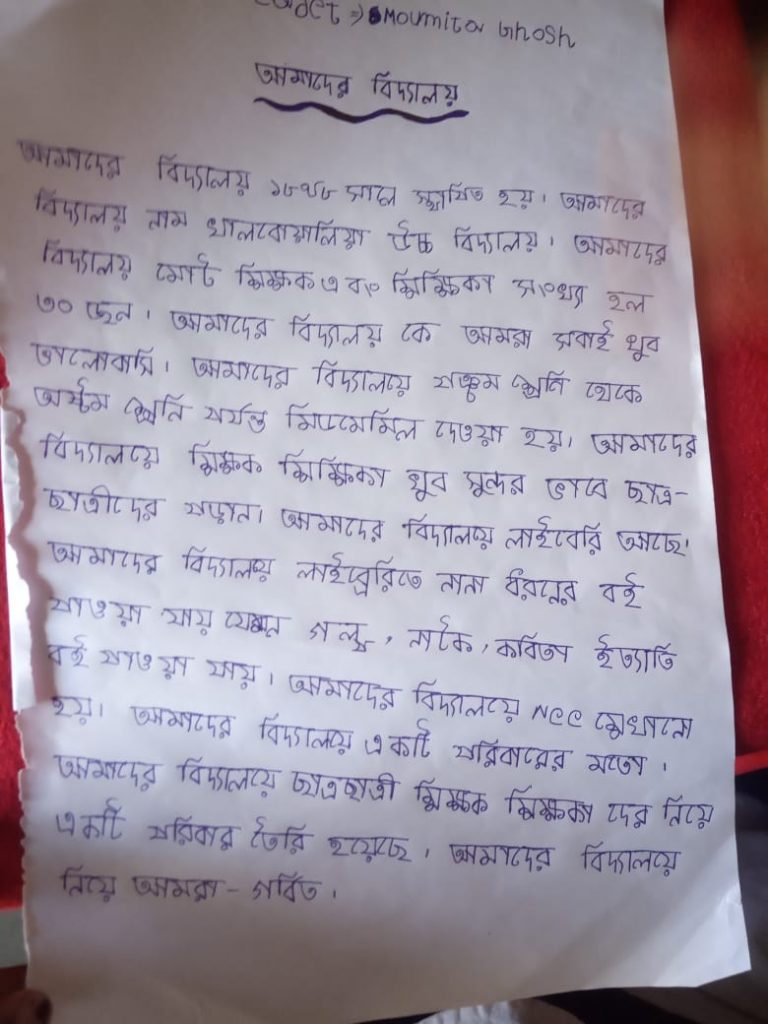 Cadet => Moumita Ghosh
আমাদের বিদ্যালয়
আমাদের বিদ্যালয় সালে স্থাপিত হয়। আমাদের
বিদ্যালয় নাম খালবোয়ালিয়া উচ্চ বিদ্যালয়। আমাদের
বিদ্যালয় মোট শিক্ষক এবং শিক্ষিকা সংখ্যা হল
৩০ জেন। আমাদের বিদ্যালয় কে আমরা সবাই খুব
ভালোবাসি। আমাদের বিদ্যালয়ে পঞ্চম শ্রেনি থেকে
অষ্টম শ্রেনি পর্যন্ত মিডমেমিল দেওয়া হয়। আমাদের
বিদ্যালয়ে শিক্ষক শিক্ষিকা খুব সুন্দর ভাবে ছাত্র-
ছাত্রীদের পড়ান। আমাদের বিদ্যালয়ে লাইবেরি আছে।
আমাদের বিদ্যালয়ে লাইব্রেরিতে নানা ধরনের বই
পাওয়া যায় যেমন গল্প, নাটক, কবিতা ইত্যাতি
বই পাওয়া যায়। আমাদের বিদ্যালয়ে NCC শেখানো
হয়। আমাদের বিদ্যালয়ে একটি পরিবারের মতো।
আমাদের বিদ্যালয়ে ছাত্রছাত্রী শিক্ষক শিক্ষকা দের নিয়ে
একটি পরিবার তৈরি হয়েছে। আমাদের বিদ্যালয়ে
নিয়ে আমরা - গর্বিত।